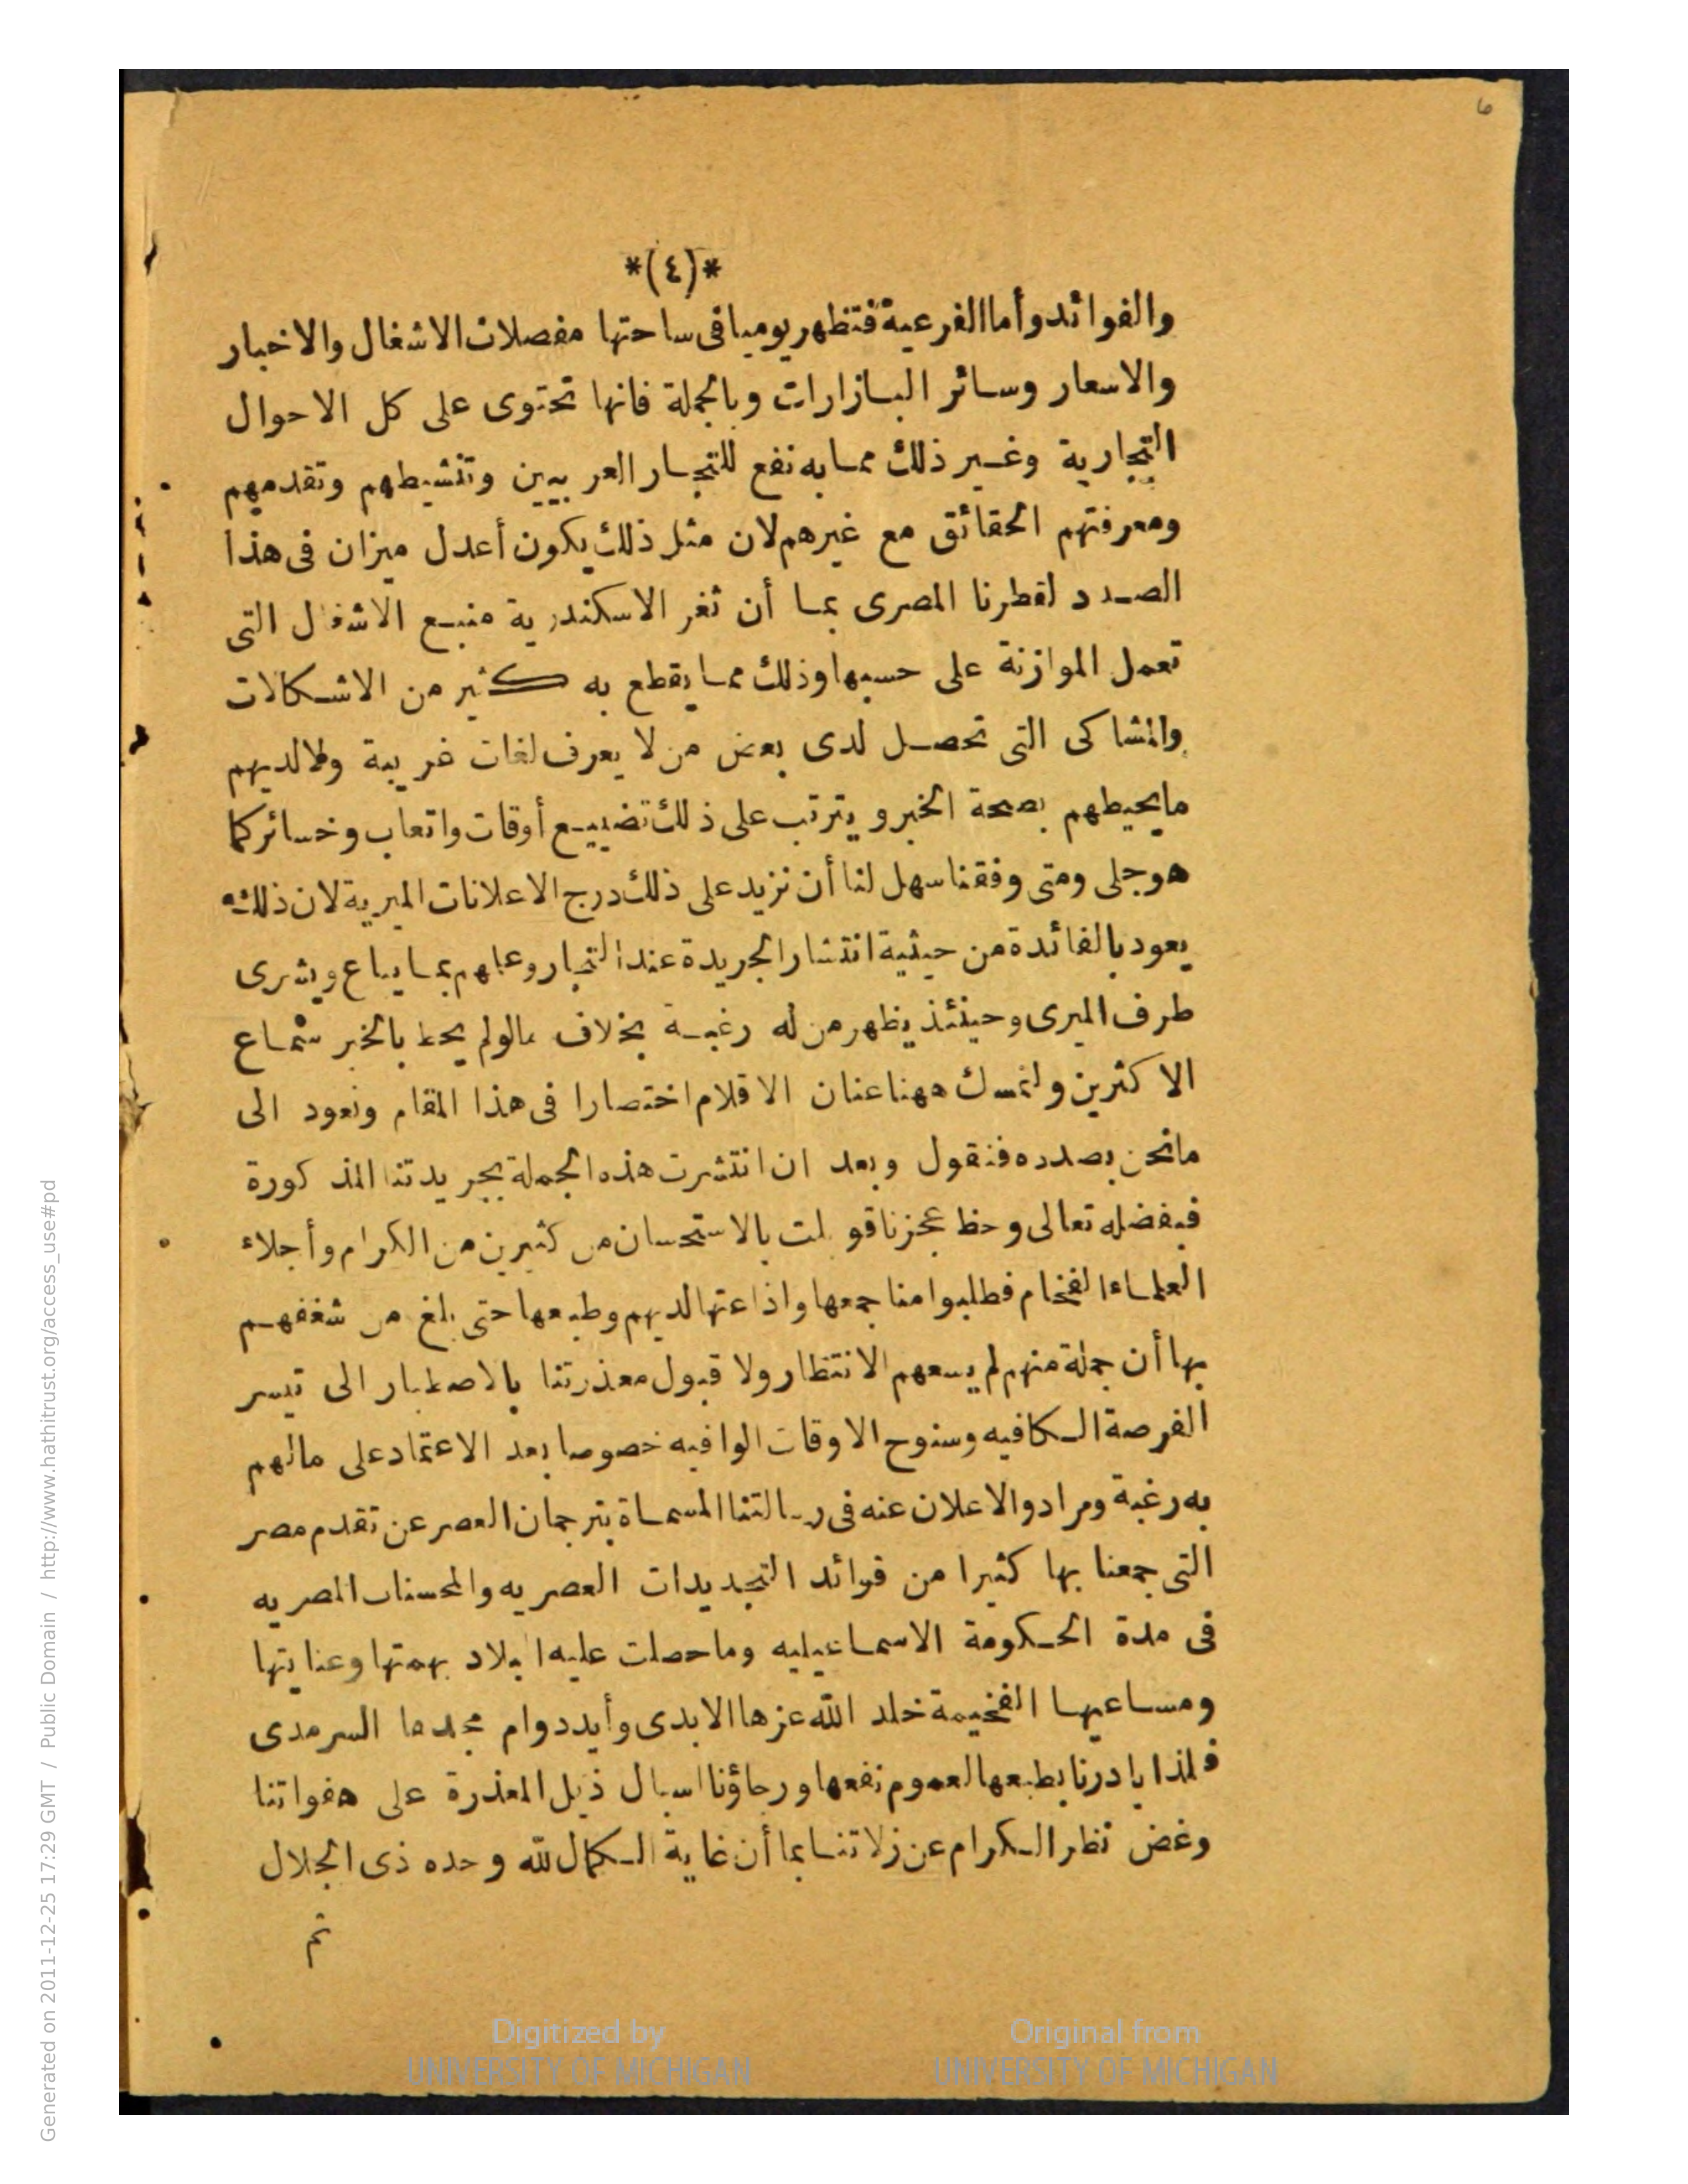 *(٤)*
والفوائد وأما الفرعية فتظهر يوميا فى ساحتها مفصلات الاشغال والاخبار
والاسعار وسائر البازارات وبالجملة فانها تحتوى على كل الاحوال
التجارية وغير ذلك مما به نفع للتجار العربيين وتنشيطهم وتقدمهم
ومعرفتهم الحقائق مع غيرهم لان مثل ذلك يكون أعدل ميزان فى هذا
الصدد لقطرنا المصرى بما أن ثغر الاسكندرية منبع الاشغال التى
تعمل الموازنة على حسبها وذلك مما يقطع به كثير من الاشكالات
والمشاكى التى تحصل لدى بعض من لا يعرف لغات غريبة ولا لديهم
ما يحيطهم بصحة الخبر ويترتب على ذلك تضييع أوقات واتعاب وخسائر كما
هو جلى ومتى وفقنا سهل لنا أن نزيد على ذلك درج الاعلانات الميرية لان ذلك
يعود بالفائدة من حيثية انتشار الجريدة عند التجار وعلمهم بما يباع ويشرى
طرف الميرى وحينئذ يظهر من له رغبة بخلاف مالو لم يحط بالخبر سماع
الاكثرين ولنمسك ههنا عنان الاقلام اختصارا فى هذا المقام ونعود الى
مانحن بصدده فنقول وبعد ان انتشرت هذه الجملة بجريدتنا المذكورة
فبفضله تعالى وحظ عجزنا قوبلت بالاستحسان من كثيرين من الكرام وأجلاء
العلماء الفخام فطلبوا منا جمعها واذاعتها لديهم وطبعها حتى بلغ من شغفهم
بها أن جملة منهم لم يسعهم الانتظار ولا قبول معذرتنا بالاصطبار الى تيسر
الفرصة الكافيه وسنوح الاوقات الوافيه خصوصا بعد الاعتماد على مالهم
به رغبة ومراد والاعلان عنه فى رسالتنا المسماة بترجمان العصر عن تقدم مصر
التى جمعنا بها كثيرا من فوائد التجديدات العصريه والمحسنات المصريه
فى مدة الحكومة الاسماعيليه وما حصلت عليه البلاد بهمتها وعنايتها
ومساعيها الفخيمة خلد الله عزها الابدى وأيد دوام مجدها السرمدى
فلذا بادرنا بطبعها لعموم نفعها ورجاؤنا اسبال ذيل المعذرة على هفواتنا
وغض نظر الكرام عن زلاتنا بما أن غاية الكمال لله وحده ذى الجلال
تم
Digitized by
UNIVERSITY OF MICHIGAN
Original from
UNIVERSITY OF MICHIGAN
Generated on 2011-12-25 17:29 GMT / Public Domain / http://www.hathitrust.org/access_use#pd